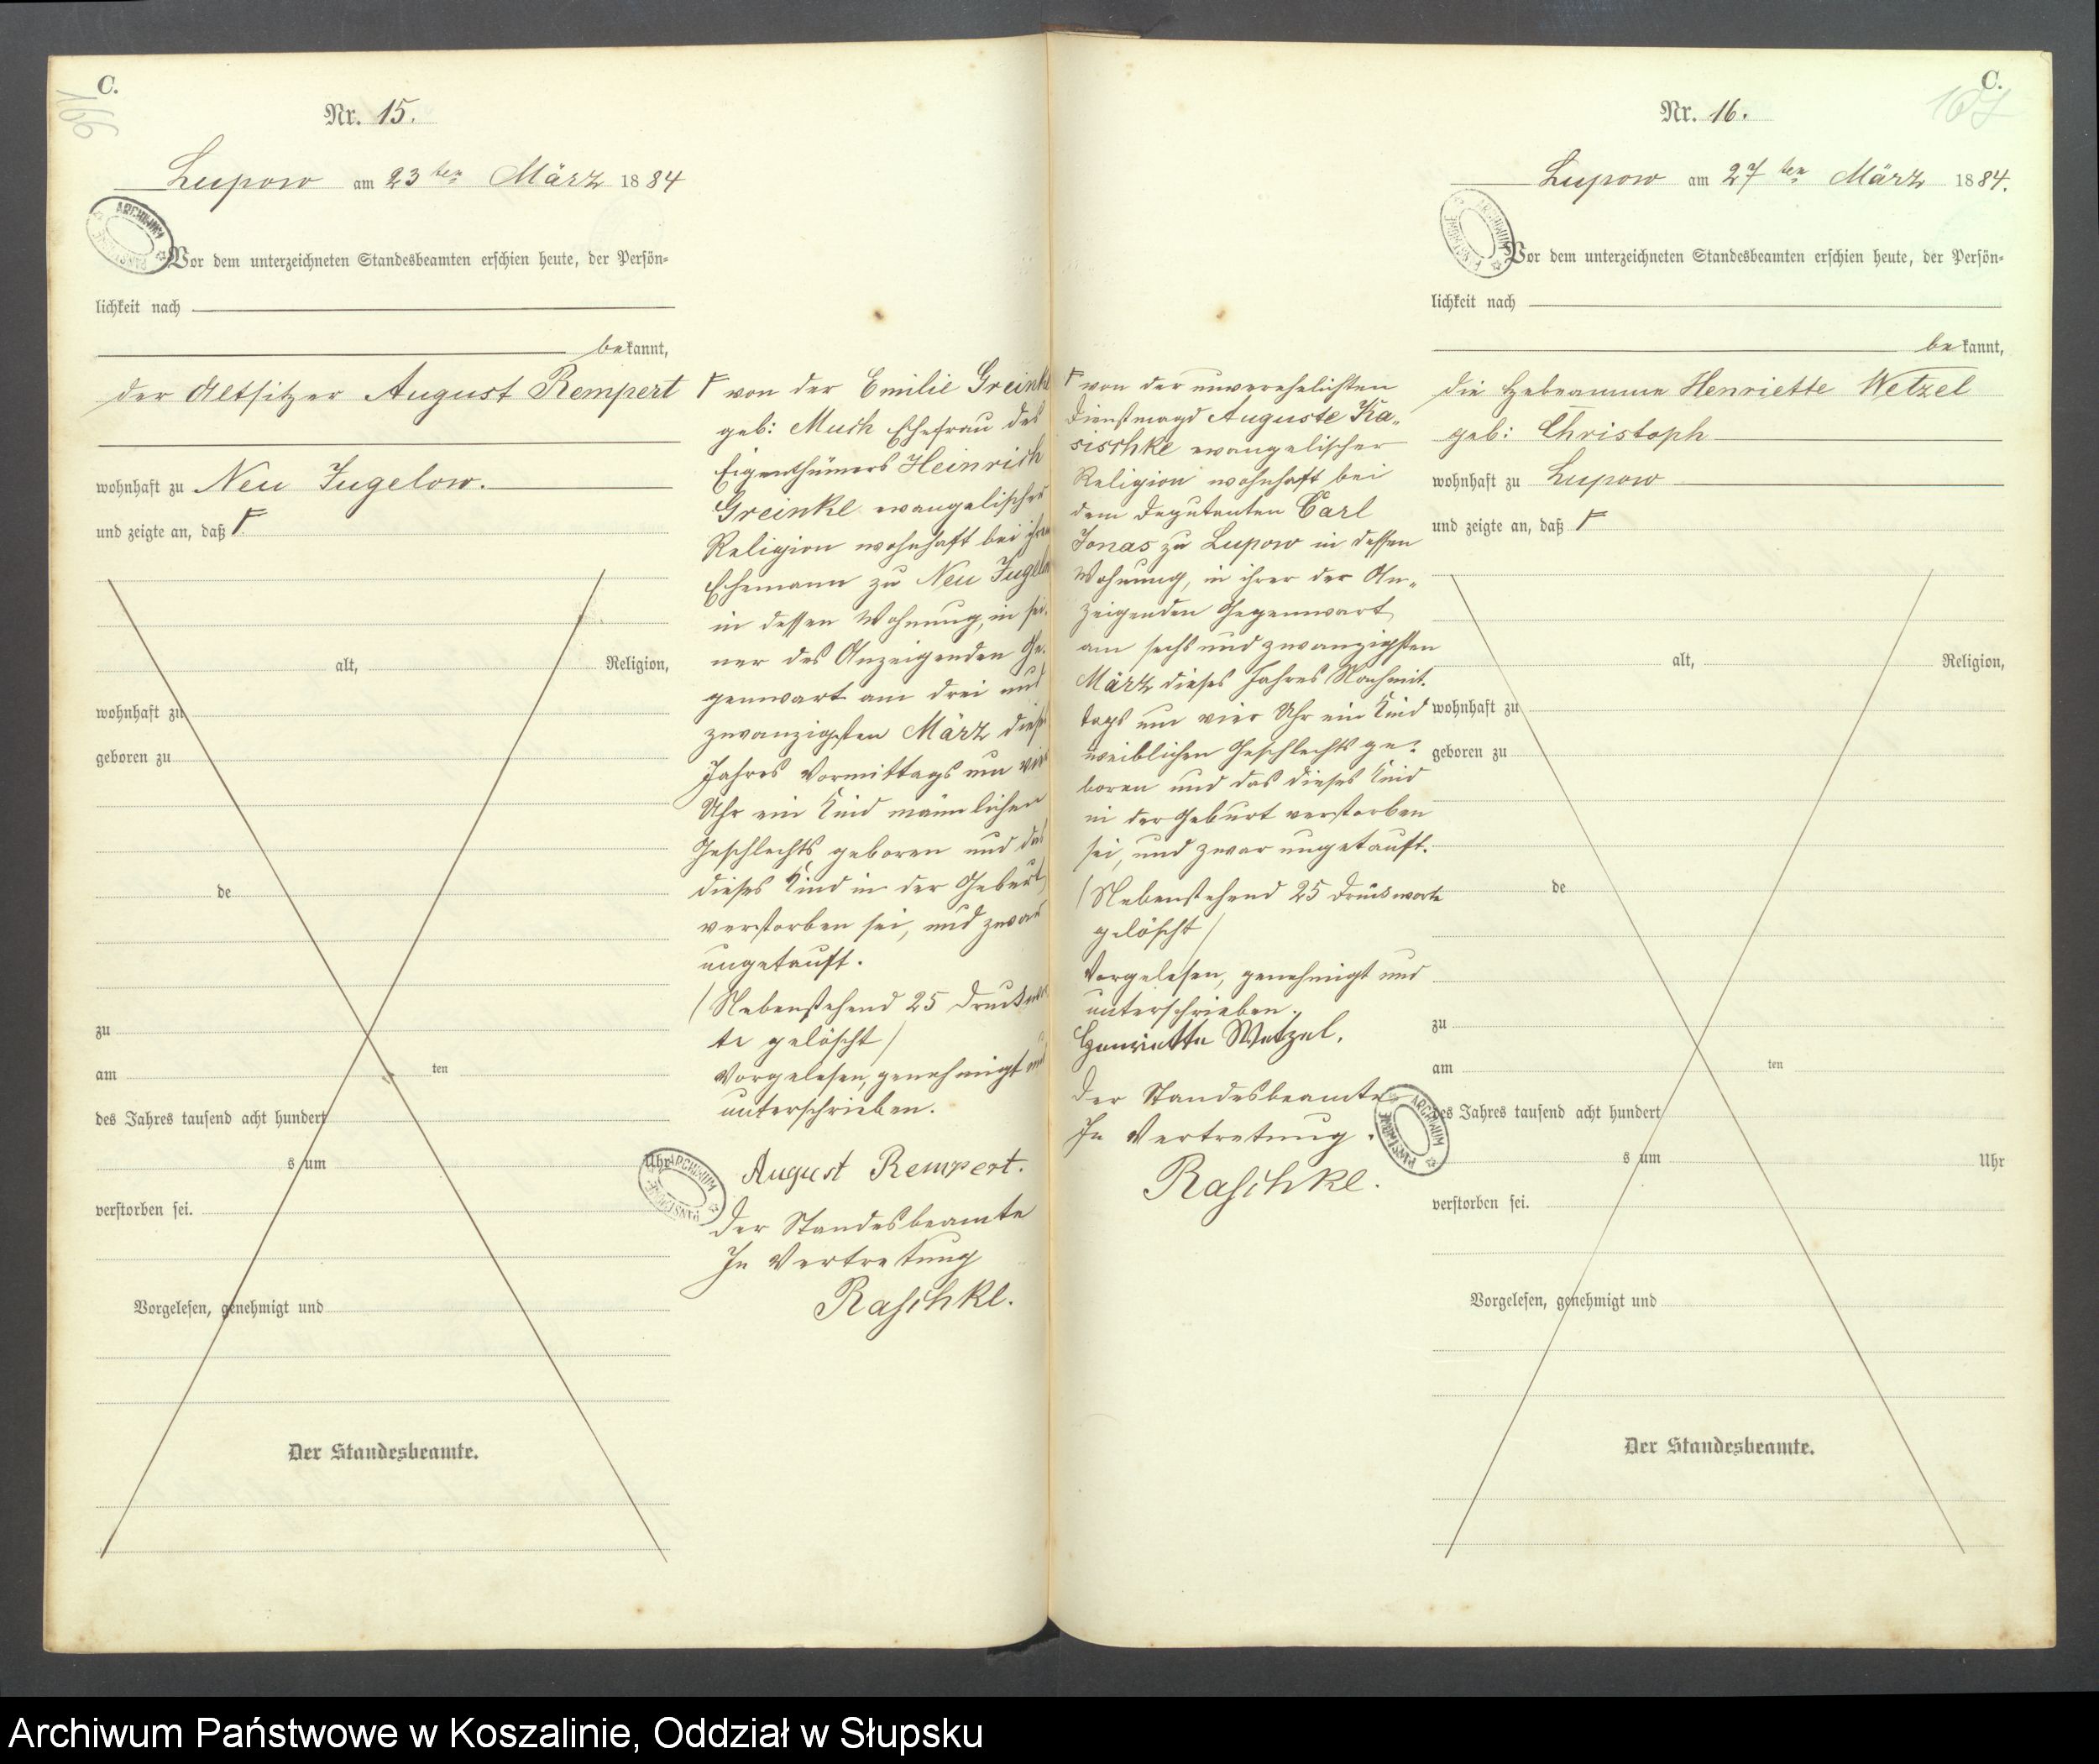 C.
166
Nr. 15.
Lupow am 23ten März 1884
ARCHIWUM PAŃSTWOWE
Vor dem unterzeichneten Standesbeamten erschien heute, der Persön-
lichkeit nach
bekannt,
der Altsitzer August Rempert
wohnhaft zu Neu Jugelow.
und zeigte an, daß
alt, Religion,
wohnhaft zu
geboren zu
de
zu
am ten
des Jahres tausend acht hundert
s um Uhr
verstorben sei.
Vorgelesen, genehmigt und
Der Standesbeamte.
von der Emilie Greinke
geb: Much Ehefrau des
Eigenthümers Heinrich
Greinke evangelischer
Religion wohnhaft bei ihrem
Ehemann zu Neu Jugelow
in dessen Wohnung, in sei-
ner des Anzeigenden Ge-
genwart am drei und
zwanzigsten März dieses
Jahres Vormittags um vier
Uhr ein Kind männlichen
Geschlechts geboren und das
dieses Kind in der Geburt
verstorben sei, und zwar
ungetauft.
(Nebenstehend 25 Druckwor-
te gelöscht)
Vorgelesen, genehmigt und
unterschrieben.
August Rempert.
ARCHIWUM PAŃSTWOWE
Der Standesbeamte
In Vertretung
Raschke.
C.
167
Nr. 16.
Lupow am 27ten März 1884.
ARCHIWUM PAŃSTWOWE
Vor dem unterzeichneten Standesbeamten erschien heute, der Persön-
lichkeit nach
bekannt,
die Hebeamme Henriette Wetzel
geb: Christoph
wohnhaft zu Lupow
und zeigte an, daß
alt, Religion,
wohnhaft zu
geboren zu
de
zu
am ten
des Jahres tausend acht hundert
s um Uhr
verstorben sei.
Vorgelesen, genehmigt und
Der Standesbeamte.
von der unverehelichten
Dienstmagd Auguste Ka-
sischke evangelischer
Religion wohnhaft bei
dem Deputanten Carl
Jonas zu Lupow in dessen
Wohnung, in ihrer der An-
zeigenden Gegenwart
am sechs und zwanzigsten
März dieses Jahres Nachmit-
tags um vier Uhr ein Kind
weiblichen Geschlechts ge-
boren und das dieses Kind
in der Geburt verstorben
sei, und zwar ungetauft.
(Nebenstehend 25 Druckworte
gelöscht)
Vorgelesen, genehmigt und
unterschrieben.
Henriette Wetzel.
Der Standesbeamte
In Vertretung.
ARCHIWUM PAŃSTWOWE
Raschke.
Archiwum Państwowe w Koszalinie, Oddział w Słupsku